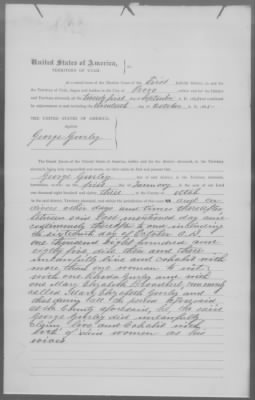 United States of America,
TERRITORY OF UTAH. } ss.
At a stated term of the District Court of the First Judicial District, in and for
the Territory of Utah, begun and holden in the City of Provo within and for the District
and Territory aforesaid, on the twenty first day of September A. D. 1885, and continued
by adjournment to and including the day of October A. D. 1885
THE UNITED STATES OF AMERICA
against
George Gurley
The Grand Jurors of the United States of America, within and for the district aforesaid, in the Territory
aforesaid, being duly empaneled and sworn, on their oaths do find and present that
George Gurley
late of said District, in the Territory aforesaid, heretofore, to-wit: on the first day of January in the year of our Lord
one thousand eight hundred and eighty three at the County of Utah
in the said District, Territory aforesaid, and within the jurisdiction of this Court, and on
divers other days and times thereafter
between said last mentioned day and
continuously thereafter to and including
the sixteenth day of October A.D.
one thousand eight hundred and
eighty five did then and there
unlawfully live and cohabit with
more than one woman to wit:
with one Rhoda Gurley and with
one Mary Elizabeth
called Mary Elizabeth Gurley and
during all the period aforesaid,
at the County aforesaid, he the said
George Gurley did unlawfully
live and cohabit with
both of said women as his
wives